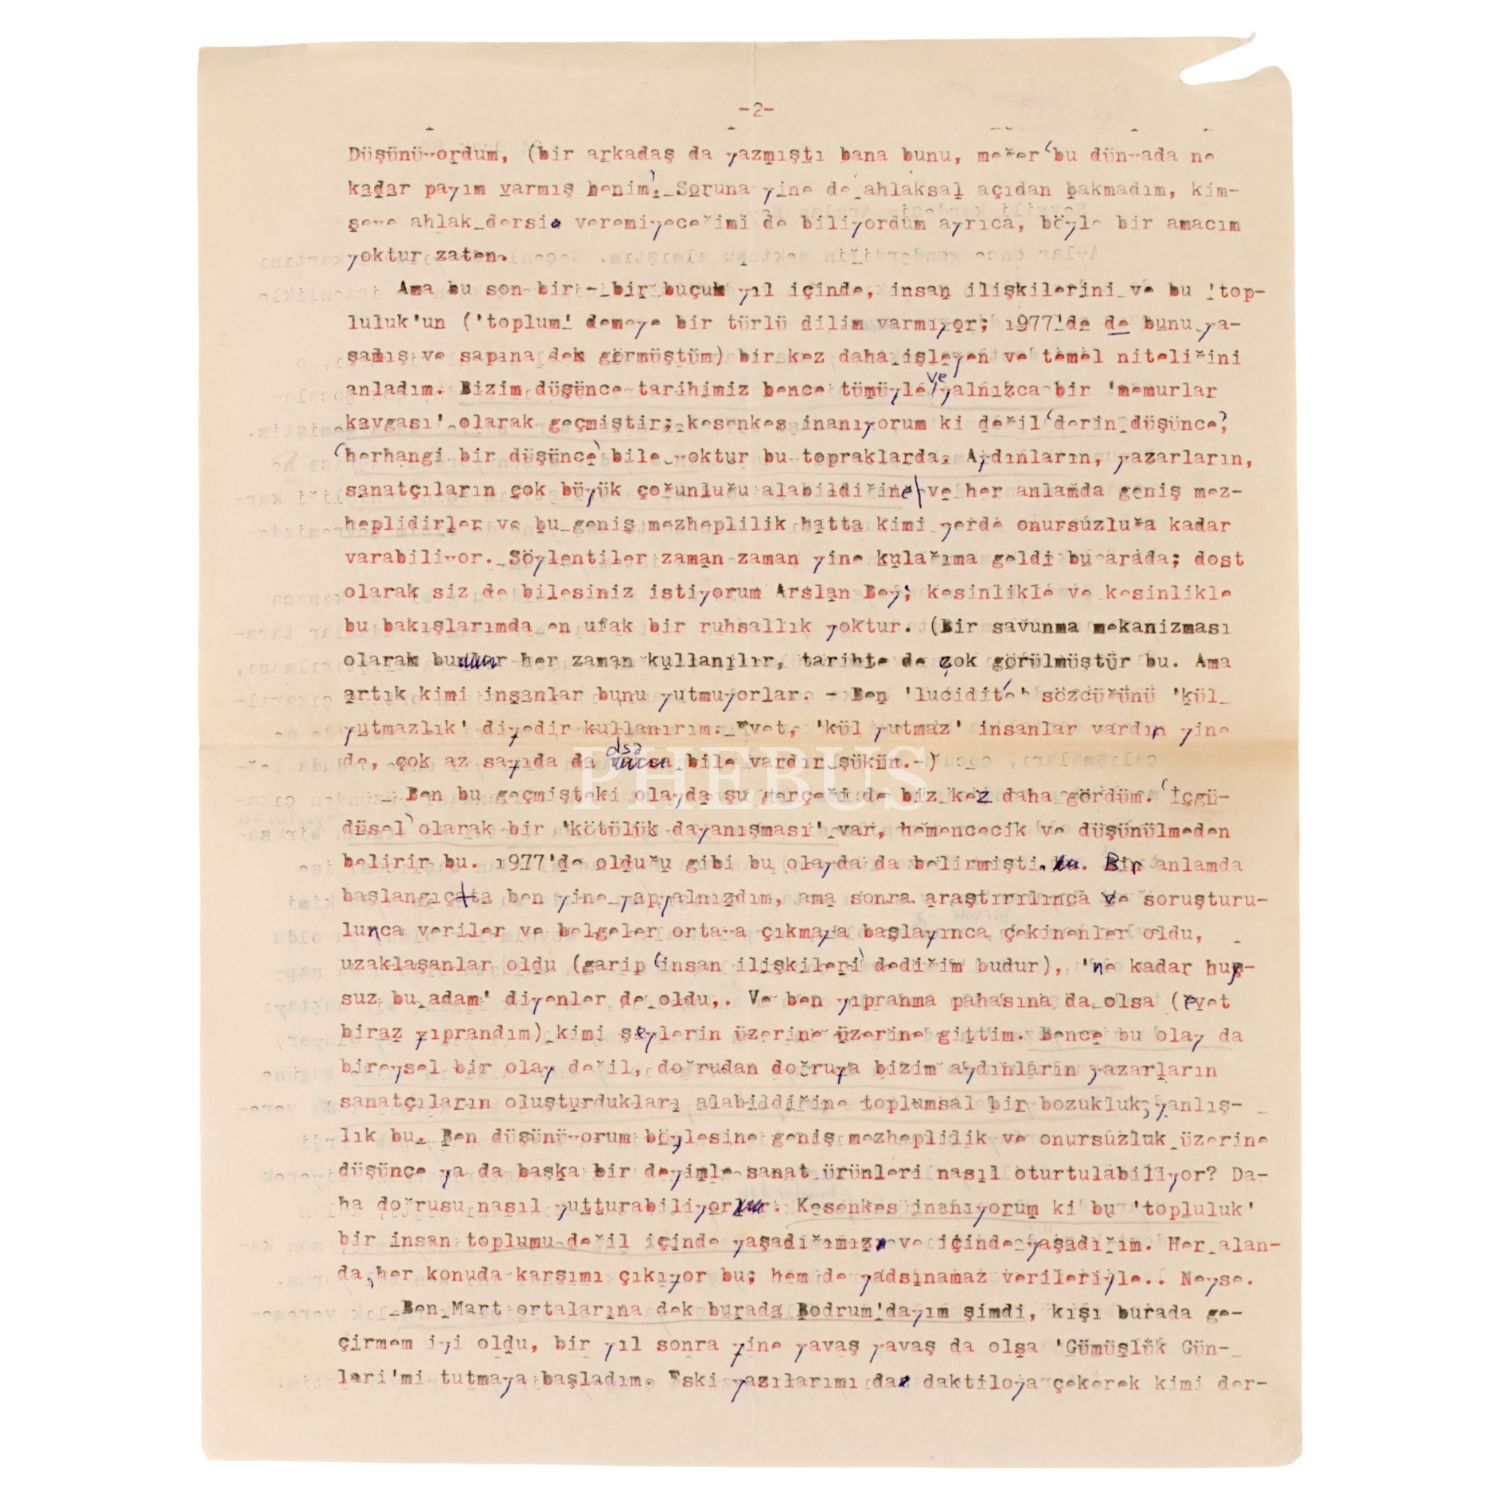 -2-
Düşünüyordum, (bir arkadaş da yazmıştı bana bunu, meğer 'bu dünyada ne
kadar payım varmış benim'. Soruna yine de ahlaksal açıdan bakmadım, kim-
seye ahlak dersi veremiyeceğimi de biliyordum ayrıca, böyle bir amacım
yoktur zaten.
Ama bu son bir - bir buçuk yıl içinde, insan ilişkilerini ve bu 'top-
luluk'un ('toplum' demeye bir türlü dilim varmıyor; 1977'de de bunu ya-
şamış ve sapına dek görmüştüm) bir kez daha işleyen ve temel niteliğini
anladım. Bizim düşünce tarihimiz bence tümüyle ve yalnızca bir 'memurlar
kavgası' olarak geçmiştir; kesenkes inanıyorum ki değil 'derin düşünce',
'herhangi bir düşünce' bile yoktur bu topraklarda. Aydınların, yazarların,
sanatçıların çok büyük çoğunluğu alabildiğine ve her anlamda geniş mez-
heplidirler ve bu geniş mezheplilik hatta kimi yerde onursuzluğa kadar
varabiliyor. Söylentiler zaman zaman yine kulağıma geldi bu arada; dost
olarak siz de bilesiniz istiyorum Arslan Bey; kesinlikle ve kesinlikle
bu bakışlarımda en ufak bir ruhsallık yoktur. (Bir savunma mekanizması
olarak bunlar her zaman kullanılır, tarihte de çok görülmüştür bu. Ama
artık kimi insanlar bunu yutmuyorlar. - Ben 'lucidité' sözcüğünü 'kül
yutmazlık' diyedir kullanırım. Evet, 'kül yutmaz' insanlar vardır yine
de, çok az sayıda da olsa bile vardır şükür.-)
Ben bu geçmişteki olayda şu gerçeği de biz kez daha gördüm. 'İçgü-
düsel' olarak bir 'kötülük dayanışması' var, hemencecik ve düşünülmeden
belirir bu. 1977'de olduğu gibi bu olayda da belirmişti. Bir anlamda
başlangıçta ben yine yapyalnızdım, ama sonra araştırılınca ve soruşturu-
lunca veriler ve belgeler ortaya çıkmaya başlayınca çekinenler oldu,
uzaklaşanlar oldu (garip 'insan ilişkileri' dediğim budur), 'ne kadar huy-
suz bu adam' diyenler de oldu,. Ve ben yıpranma pahasına da olsa (evet
biraz yıprandım) kimi şeylerin üzerine üzerine gittim. Bence bu olay da
bireysel bir olay değil, doğrudan doğruya bizim aydınların yazarların
sanatçıların oluşturdukları alabildiğine toplumsal bir bozukluk, yanlış-
lık bu. Ben düşünüyorum böylesine geniş mezheplilik ve onursuzluk üzerine
düşünce ya da başka bir deyimle sanat ürünleri nasıl oturtulabiliyor? Da-
ha doğrusu nasıl yutturabiliyor. Kesenkes inanıyorum ki bu 'topluluk'
bir insan toplumu değil içinde yaşadığımız ve içinde yaşadığım. Her alan-
da, her konuda karşımı çıkıyor bu; hem de yadsınamaz verileriyle.. Neyse.
Ben Mart ortalarına dek burada Bodrum'dayım şimdi, kışı burada ge-
çirmem iyi oldu, bir yıl sonra yine yavaş yavaş da olsa 'Gümüşlük Gün-
leri'mi tutmaya başladım. Eski yazılarımı da daktiloya çekerek kimi der-
PHEBUS